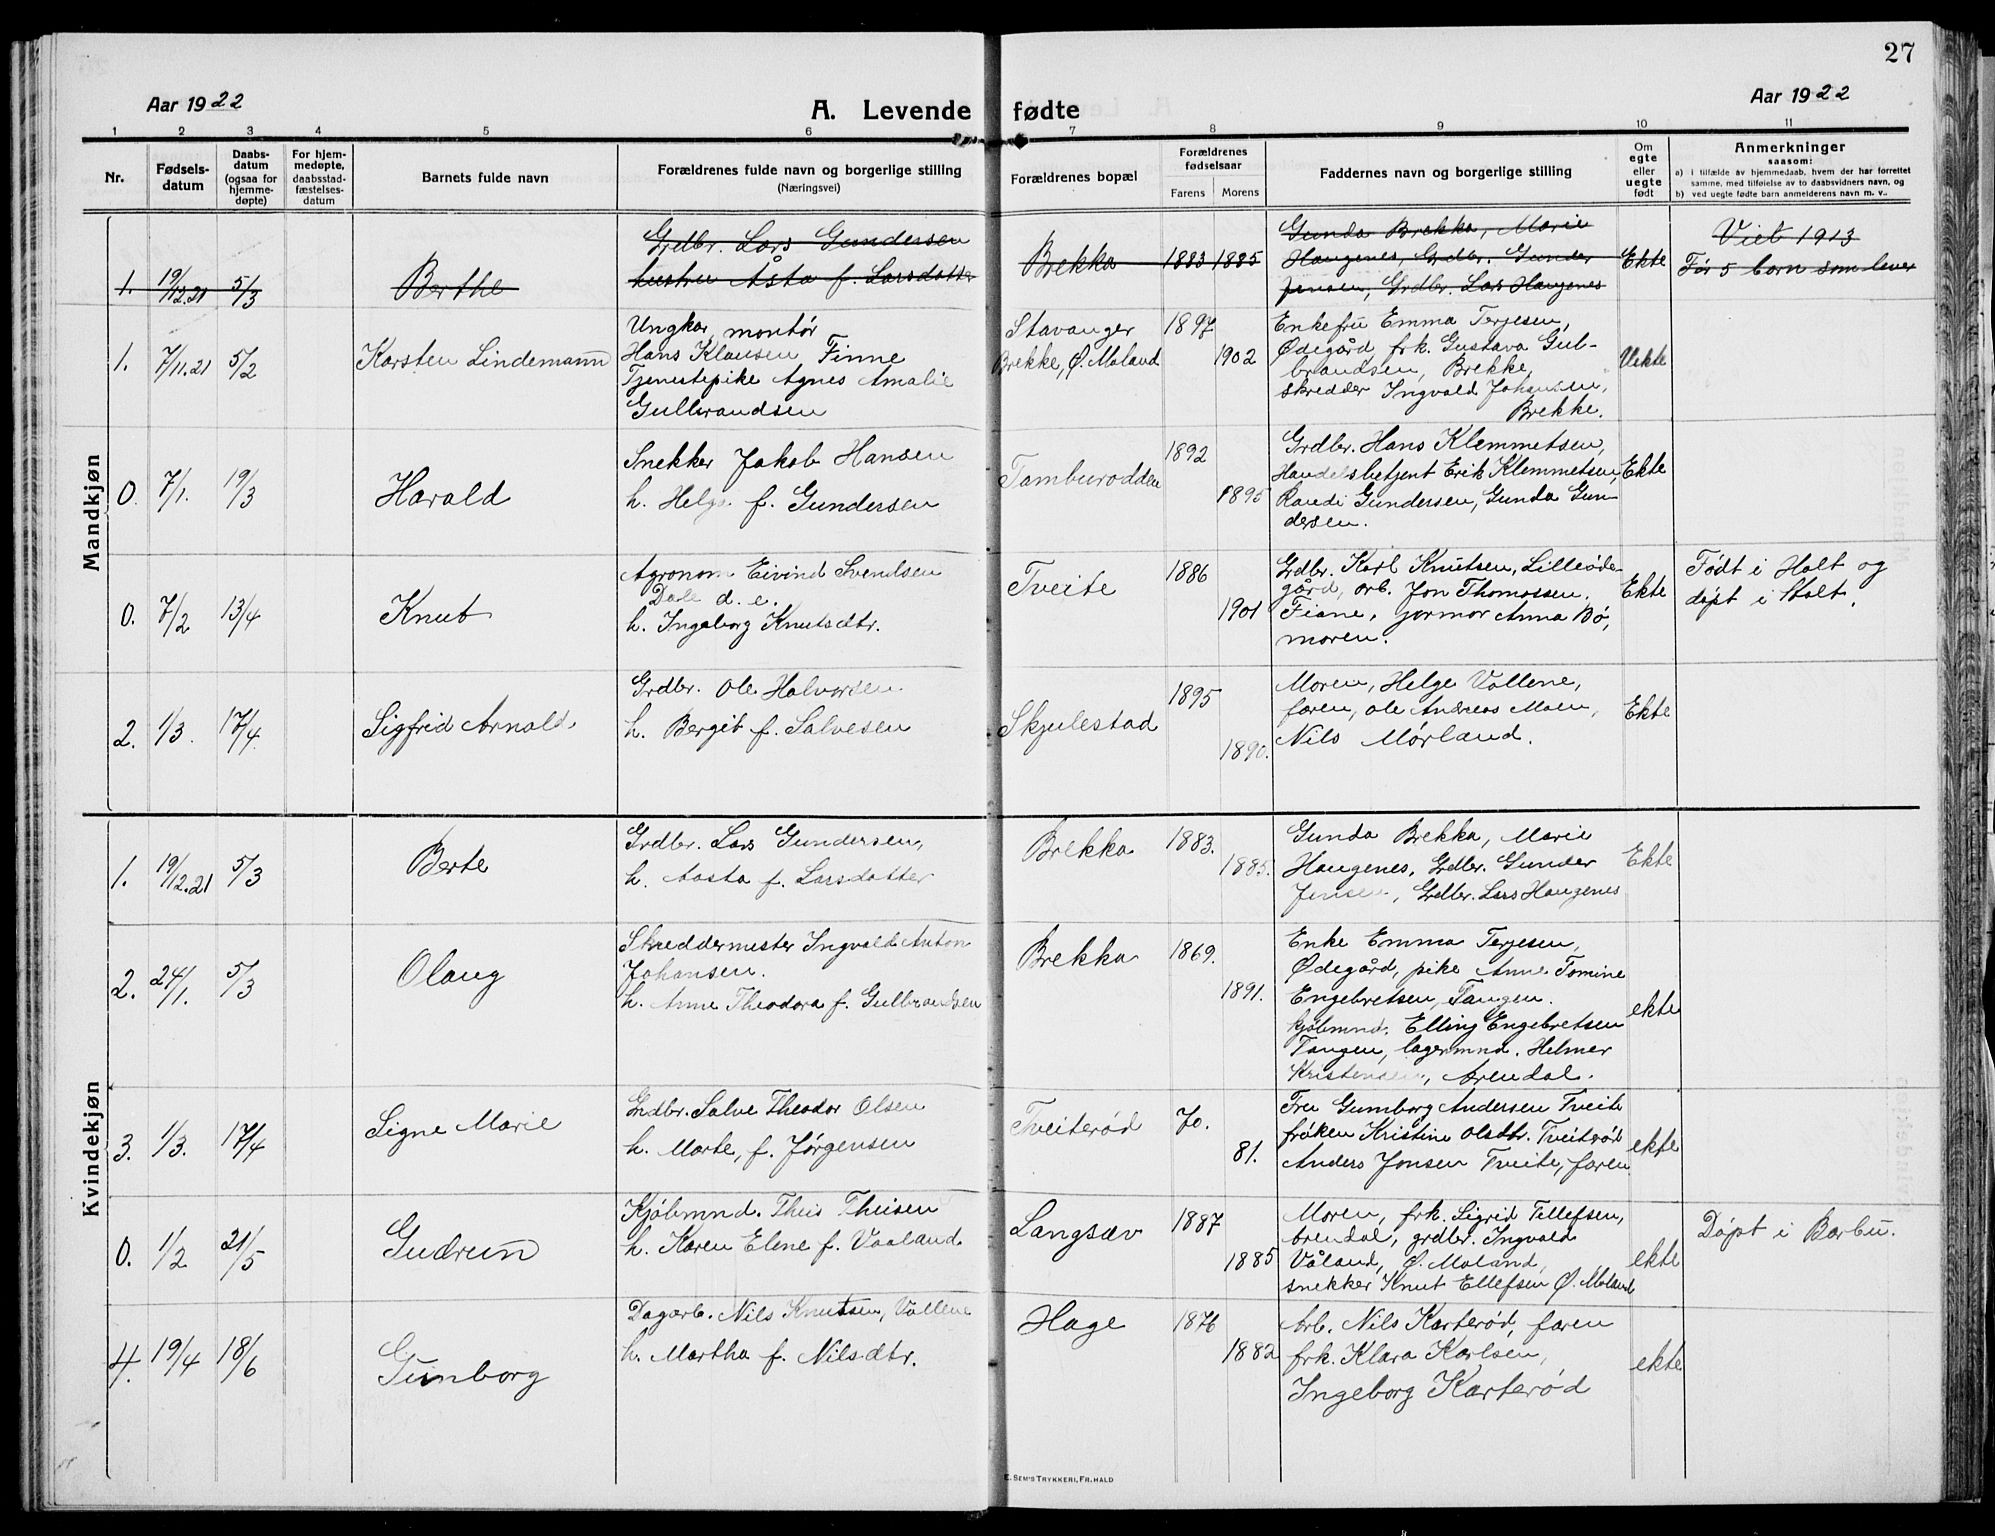 27
Aar 1922
A. Levende fødte
Aar 1922
1 2 3 4 5 6 7 8 9 10 11
Nr.
Fødsels-
datum
Daabs-
datum
(ogsaa for
hjemme-
døpte)
For hjem-
medøpte,
daabsstad-
fæstelses-
datum
Barnets fulde navn
Forældrenes fulde navn og borgerlige stilling
(Næringsvei)
Forældrenes bopæl
Forældrenes
fødselsaar
Farens Morens
Faddernes navn og borgerlige stilling
Om
egte
eller
uegte
født
Anmerkninger
saasom:
a) i tilfælde av hjemmedaab, hvem der har forrettet
samme, med tilføielse av to daabsvidners navn, og
b) ved uegte fødte barn anmelderens navn m. v..
Mandkjøn
1. 19/12.21 5/3 Berthe
Grdbr. Lars Gundersen
hustru Åsta f. Larsdatter
Brekka 1883 1885
Gunda Brekka, Marie
Haugenes, Grdbr. Gunder
Jensen, Grdbr. Lars Haugenes
Ekte
Viet 1913
Før 5 barn som lever
1. 7/11.21 5/2 Karsten Lindemann
Ungkar, montør
Hans Klausen Finne
Tjenestepike Agnes Amalie
Gulbrandsen
Stavanger 1897
Brekke, Ø. Moland 1902
Enkefru Emma Terjesen,
Ødegård frk. Gustava Gul-
brandsen, Brekke,
skredder Ingvald Johansen,
Brekke.
Uekte
0. 7/1. 19/3 Harald
Snekker Jakob Hansen
h. Helga f. Gundersen
Tamburodden 1892
1895
Grdbr. Hans Klemmetsen,
Handelsbetjent Erik Klemmetsen,
Randi Gundersen, Gunda Gun-
dersen.
Ekte
0. 7/2 13/4 Knut
Agronom Eivind Svendsen
Dale d. e.
h. Ingeborg Knutsdtr.
Tveite 1886
1901
Grdbr. Karl Knutsen, Lilleøde-
gård, arb. Jon Thomassen.
Fiane, jormor Anna Bø,
moren.
Ekte
Født i Holt og
døpt i Holt.
2. 1/3. 17/4. Sigfrid Arnold
Grdbr. Ole Halvorsen.
h. Bergit f. Salvesen
Skjulestad 1895
1890.
Moren, Helge Vollene,
faren, Ole Andreas Moen,
Nils Mørland.
Ekte
Kvindekjøn
1. 19/12.21 5/3 Berte
Grdbr. Lars Gundersen,
h. Aasta f. Larsdatter
Brekka 1883.
1885.
Gunda Brekka, Marie
Haugenes, Grdbr. Gunder
Jensen, Grdbr. Lars Haugenes
Ekte
2. 24/1. 5/3 Olaug
Skreddermester Ingvald Anton
Johansen.
h. Anne Theodora f. Gulbrandsen
Brekka 1869.
1891.
Enke Emma Terjesen,
Ødegård, pike Anne Tomine
Engebretsen, Tangen.
kjøbmnd. Elling Engebretsen
Tangen, lagermnd. Helmer
Kristensen, Arendal.
ekte
3. 1/3. 17/4 Signe Marie
Grdbr. Salve Theodor Olsen
h. Marte, f. Jørgensen
Tveiterød 70.
81.
Fru Gumborg Andersen Tveite
frøken Kristine Olsdtr. Tveiterød
Anders Jonsen Tveite, faren
ekte
0. 1/2 21/5 Gudrun
Kjøbmnd. Theis Theisen
h. Karen Elene f. Vaaland
Langsæv 1887
1885
Moren, frk. Sigrid Tellefsen,
Arendal, grdbr. Ingvald
Våland, Ø. Moland,
snekker Knut Ellefsen Ø. Moland
ekte
Døpt i Barbu.
4. 19/4 18/6 Gunborg
Dagarb. Nils Knutsen, Vollene
h. Martha f. Nilsdtr.
Hage 1876
1882
Arb. Nils Karterød, faren
frk. Klara Karlsen,
Ingeborg Karterød
ekte
E. SEM'S TRYKKERI, FR.HALD